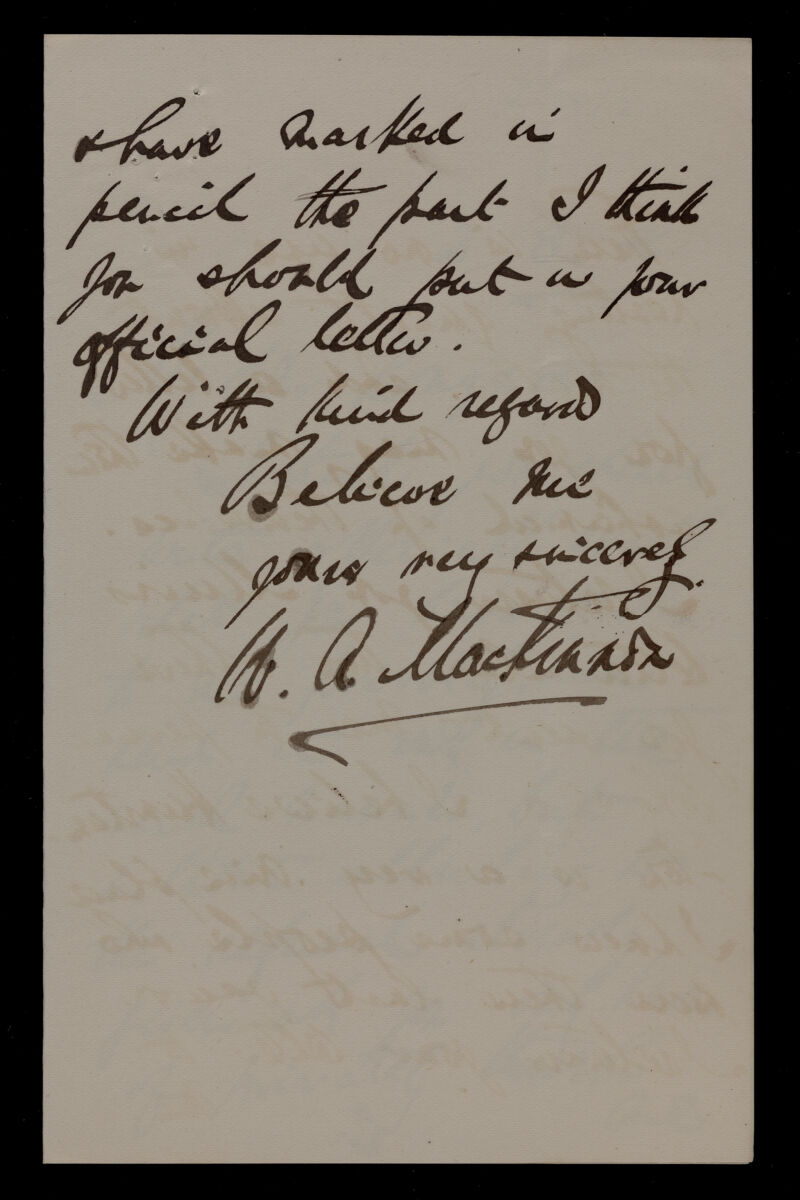 & have marked in
pencil the part I think
you should put in your
official letter.
With kind regards
Believe me
yours very sincerely
W. A. Mackinnon